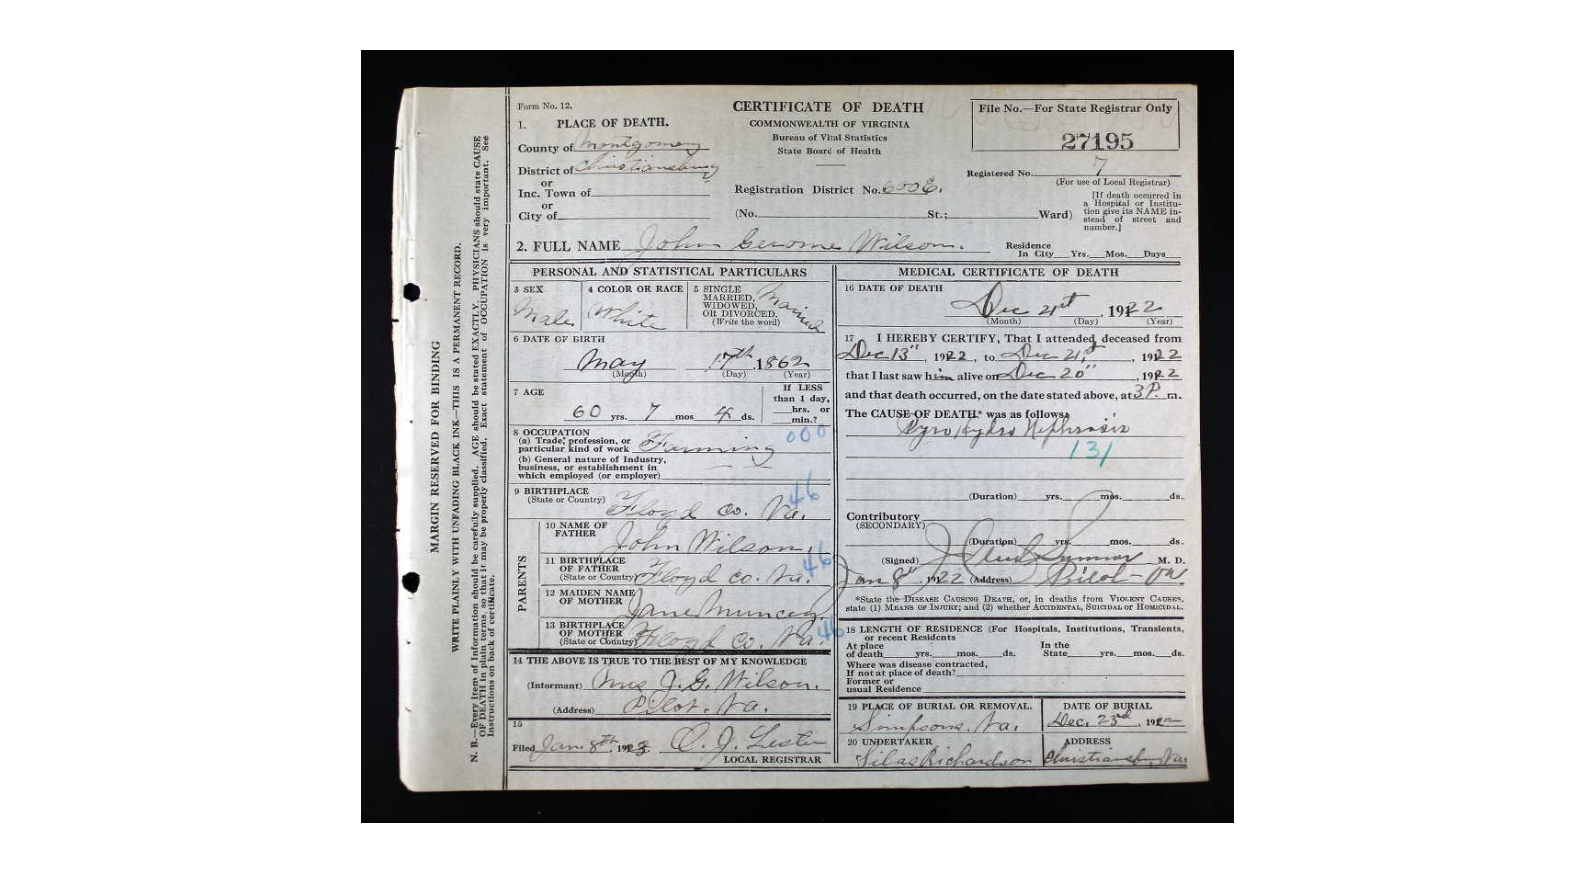 Form No. 12.
1. PLACE OF DEATH.
County of Montgomery
District of Christiansburg
or
Inc. Town of
or
City of
CERTIFICATE OF DEATH
COMMONWEALTH OF VIRGINIA
Bureau of Vital Statistics
State Board of Health
Registration District No. 600E.
(No. St.; Ward)
File No.—For State Registrar Only
27195
Registered No. 7
(For use of Local Registrar)
[If death occurred in
a Hospital or Institu-
tion give its NAME in-
stead of street and
number.]
2. FULL NAME John Gerome Wilson.
Residence
In City Yrs. Mos. Days
PERSONAL AND STATISTICAL PARTICULARS
3 SEX
Male
4 COLOR OR RACE
White
5 SINGLE
MARRIED,
WIDOWED,
OR DIVORCED.
(Write the word)
Married
6 DATE OF BIRTH
May 17th, 1862
(Month) (Day) (Year)
7 AGE
60 yrs. 7 mos 4 ds.
If LESS
than 1 day,
hrs. or
min.?
8 OCCUPATION
(a) Trade, profession, or
particular kind of work Farming
000
(b) General nature of Industry,
business, or establishment in
which employed (or employer)
9 BIRTHPLACE
(State or Country)
Floyd Co. Va.
46
PARENTS
10 NAME OF
FATHER
John Wilson.
11 BIRTHPLACE
OF FATHER
(State or Country) Floyd Co. Va.
46
12 MAIDEN NAME
OF MOTHER
Jane Muncey
13 BIRTHPLACE
OF MOTHER
(State or Country) Floyd Co. Va.
46
14 THE ABOVE IS TRUE TO THE BEST OF MY KNOWLEDGE
(Informant) Mrs J. G. Wilson.
(Address) Pilot. Va.
15
Filed Jan. 8th, 1923. O. J. Lester
LOCAL REGISTRAR
MEDICAL CERTIFICATE OF DEATH
16 DATE OF DEATH
Dec 21st, 1922
(Month) (Day) (Year)
17 I HEREBY CERTIFY, That I attended deceased from
Dec 13", 1922, to Dec 21st, 1922
that I last saw him alive on Dec 20", 1922
and that death occurred, on the date stated above, at 3 P. m.
The CAUSE OF DEATH* was as follows:
Pyro hydro Nephrosis
131
(Duration) yrs. mos. ds.
Contributory
(SECONDARY)
(Duration) yrs. mos. ds.
(Signed) M. D.
Jan 8", 1922 (Address) Pilot - Va
*State the DISEASE CAUSING DEATH, or, in deaths from VIOLENT CAUSES,
state (1) MEANS OF INJURY; and (2) whether ACCIDENTAL, SUICIDAL or HOMICIDAL.
18 LENGTH OF RESIDENCE (For Hospitals, Institutions, Transients,
or recent Residents
At place
of death yrs. mos. ds.
In the
State yrs. mos. ds.
Where was disease contracted,
If not at place of death?
Former or
usual Residence
19 PLACE OF BURIAL OR REMOVAL.
Simpsons. Va.
DATE OF BURIAL
Dec. 23rd, 1922
20 UNDERTAKER
Silas Richardson
ADDRESS
Christiansburg Va.
MARGIN RESERVED FOR BINDING
WRITE PLAINLY WITH UNFADING BLACK INK—THIS IS A PERMANENT RECORD.
N. B.—Every item of Information should be carefully supplied. AGE should be stated EXACTLY. PHYSICIANS should state CAUSE
OF DEATH in plain terms, so that it may be properly classified. Exact statement of OCCUPATION is very important. See
Instructions on back of certificate.